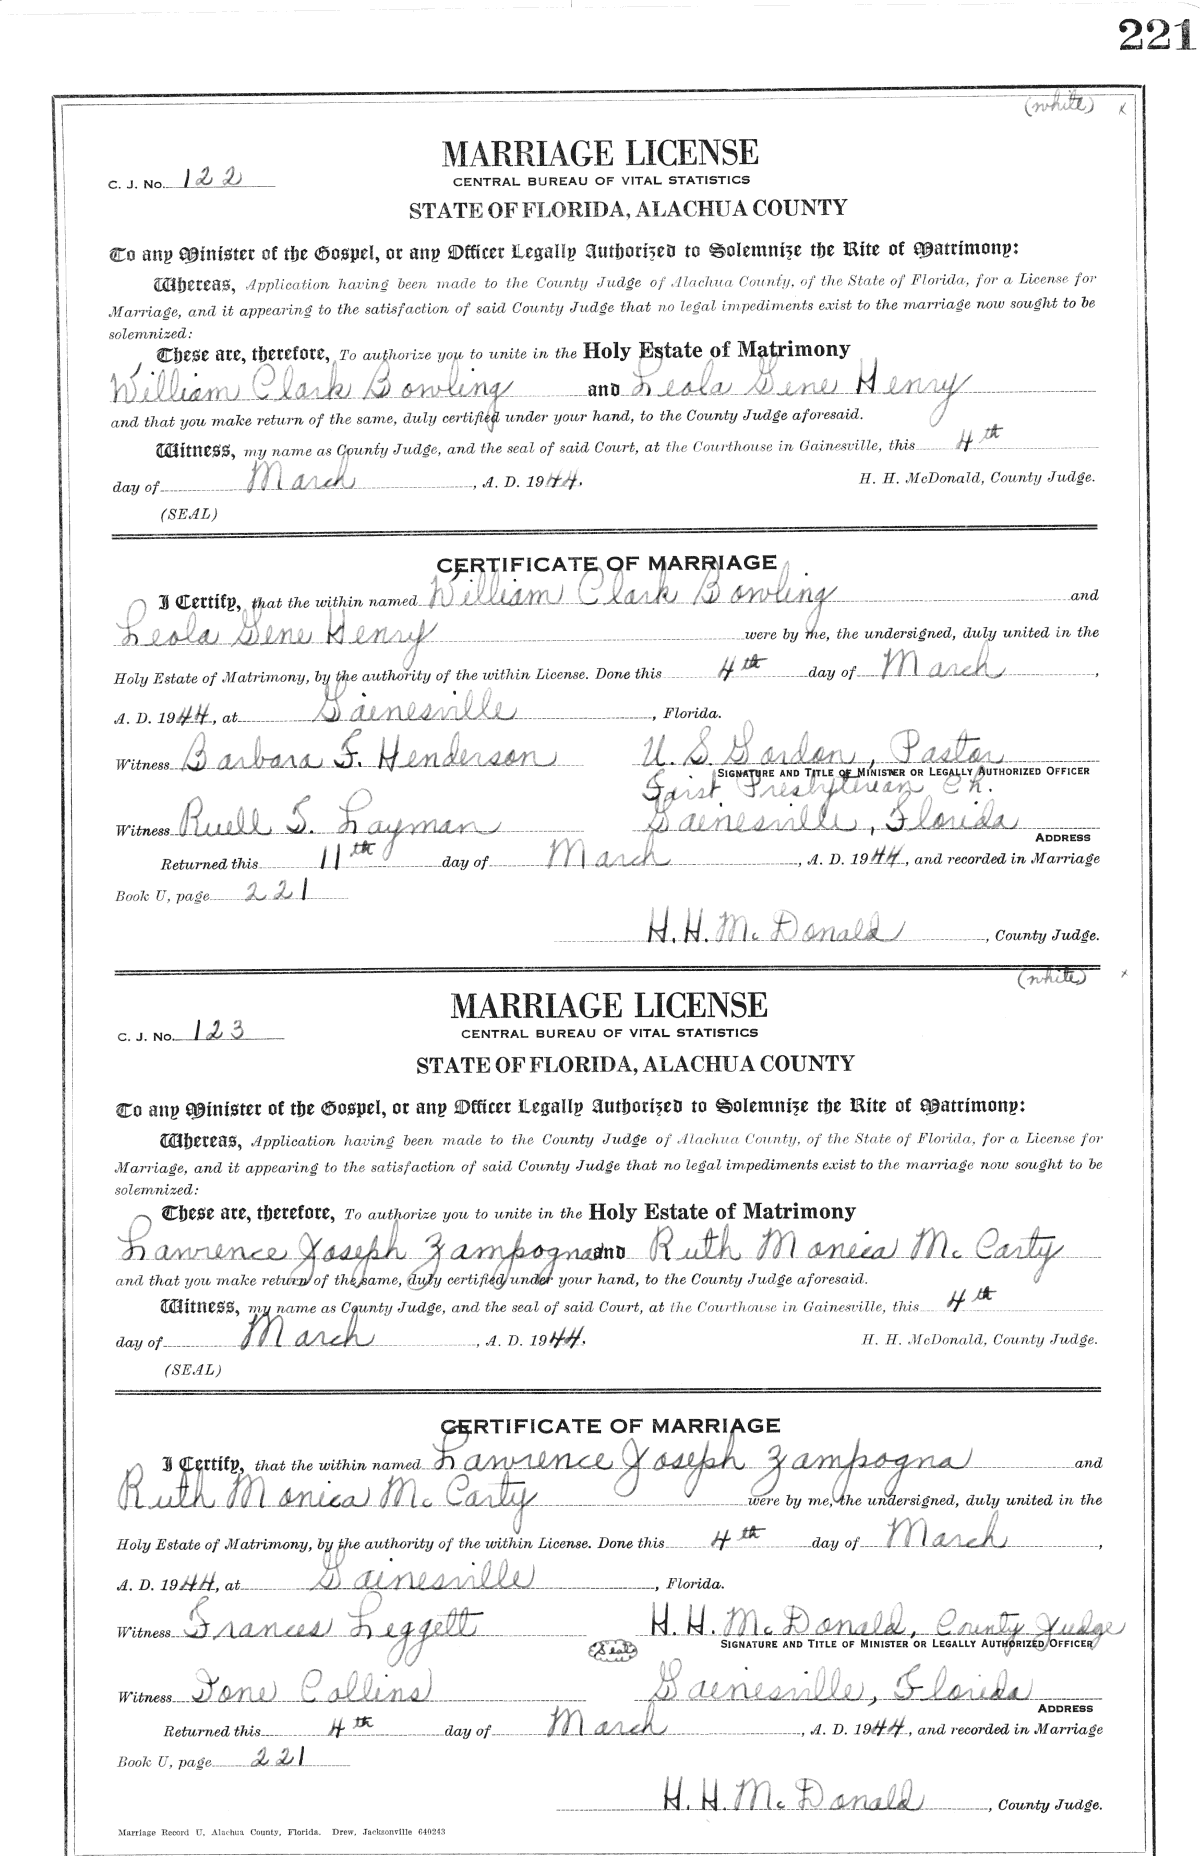 221
(white) x
MARRIAGE LICENSE
C. J. No. 122
CENTRAL BUREAU OF VITAL STATISTICS
STATE OF FLORIDA, ALACHUA COUNTY
To any Minister of the Gospel, or any Officer Legally Authorized to Solemnize the Rite of Matrimony:
Whereas, Application having been made to the County Judge of Alachua County, of the State of Florida, for a License for
Marriage, and it appearing to the satisfaction of said County Judge that no legal impediments exist to the marriage now sought to be
solemnized:
These are, therefore, To authorize you to unite in the Holy Estate of Matrimony
William Clark Bowling and Leola Gene Henry
and that you make return of the same, duly certified under your hand, to the County Judge aforesaid.
Witness, my name as County Judge, and the seal of said Court, at the Courthouse in Gainesville, this 4th
day of March, A. D. 1944. H. H. McDonald, County Judge.
(SEAL)
CERTIFICATE OF MARRIAGE
I Certify, that the within named William Clark Bowling and
Leola Gene Henry were by me, the undersigned, duly united in the
Holy Estate of Matrimony, by the authority of the within License. Done this 4th day of March,
A. D. 1944, at Gainesville, Florida.
Witness Barbara F. Henderson U. S. Gordon, Pastor
SIGNATURE AND TITLE OF MINISTER OR LEGALLY AUTHORIZED OFFICER
First Presbyterian Ch.
Witness Ruell T. Layman Gainesville, Florida
ADDRESS
Returned this 11th day of March, A. D. 1944, and recorded in Marriage
Book U, page 221
H. H. McDonald, County Judge.
(white) x
MARRIAGE LICENSE
C. J. No. 123
CENTRAL BUREAU OF VITAL STATISTICS
STATE OF FLORIDA, ALACHUA COUNTY
To any Minister of the Gospel, or any Officer Legally Authorized to Solemnize the Rite of Matrimony:
Whereas, Application having been made to the County Judge of Alachua County, of the State of Florida, for a License for
Marriage, and it appearing to the satisfaction of said County Judge that no legal impediments exist to the marriage now sought to be
solemnized:
These are, therefore, To authorize you to unite in the Holy Estate of Matrimony
Lawrence Joseph Zampogna and Ruth Monica McCarty
and that you make return of the same, duly certified under your hand, to the County Judge aforesaid.
Witness, my name as County Judge, and the seal of said Court, at the Courthouse in Gainesville, this 4th
day of March, A. D. 1944. H. H. McDonald, County Judge.
(SEAL)
CERTIFICATE OF MARRIAGE
I Certify, that the within named Lawrence Joseph Zampogna and
Ruth Monica McCarty were by me, the undersigned, duly united in the
Holy Estate of Matrimony, by the authority of the within License. Done this 4th day of March,
A. D. 1944, at Gainesville, Florida.
Witness Frances Leggett H. H. McDonald, County Judge
(Seal) SIGNATURE AND TITLE OF MINISTER OR LEGALLY AUTHORIZED OFFICER
Witness Ione Collins Gainesville, Florida
ADDRESS
Returned this 4th day of March, A. D. 1944, and recorded in Marriage
Book U, page 221
H. H. McDonald, County Judge.
Marriage Record U, Alachua County, Florida. Drew, Jacksonville 640243